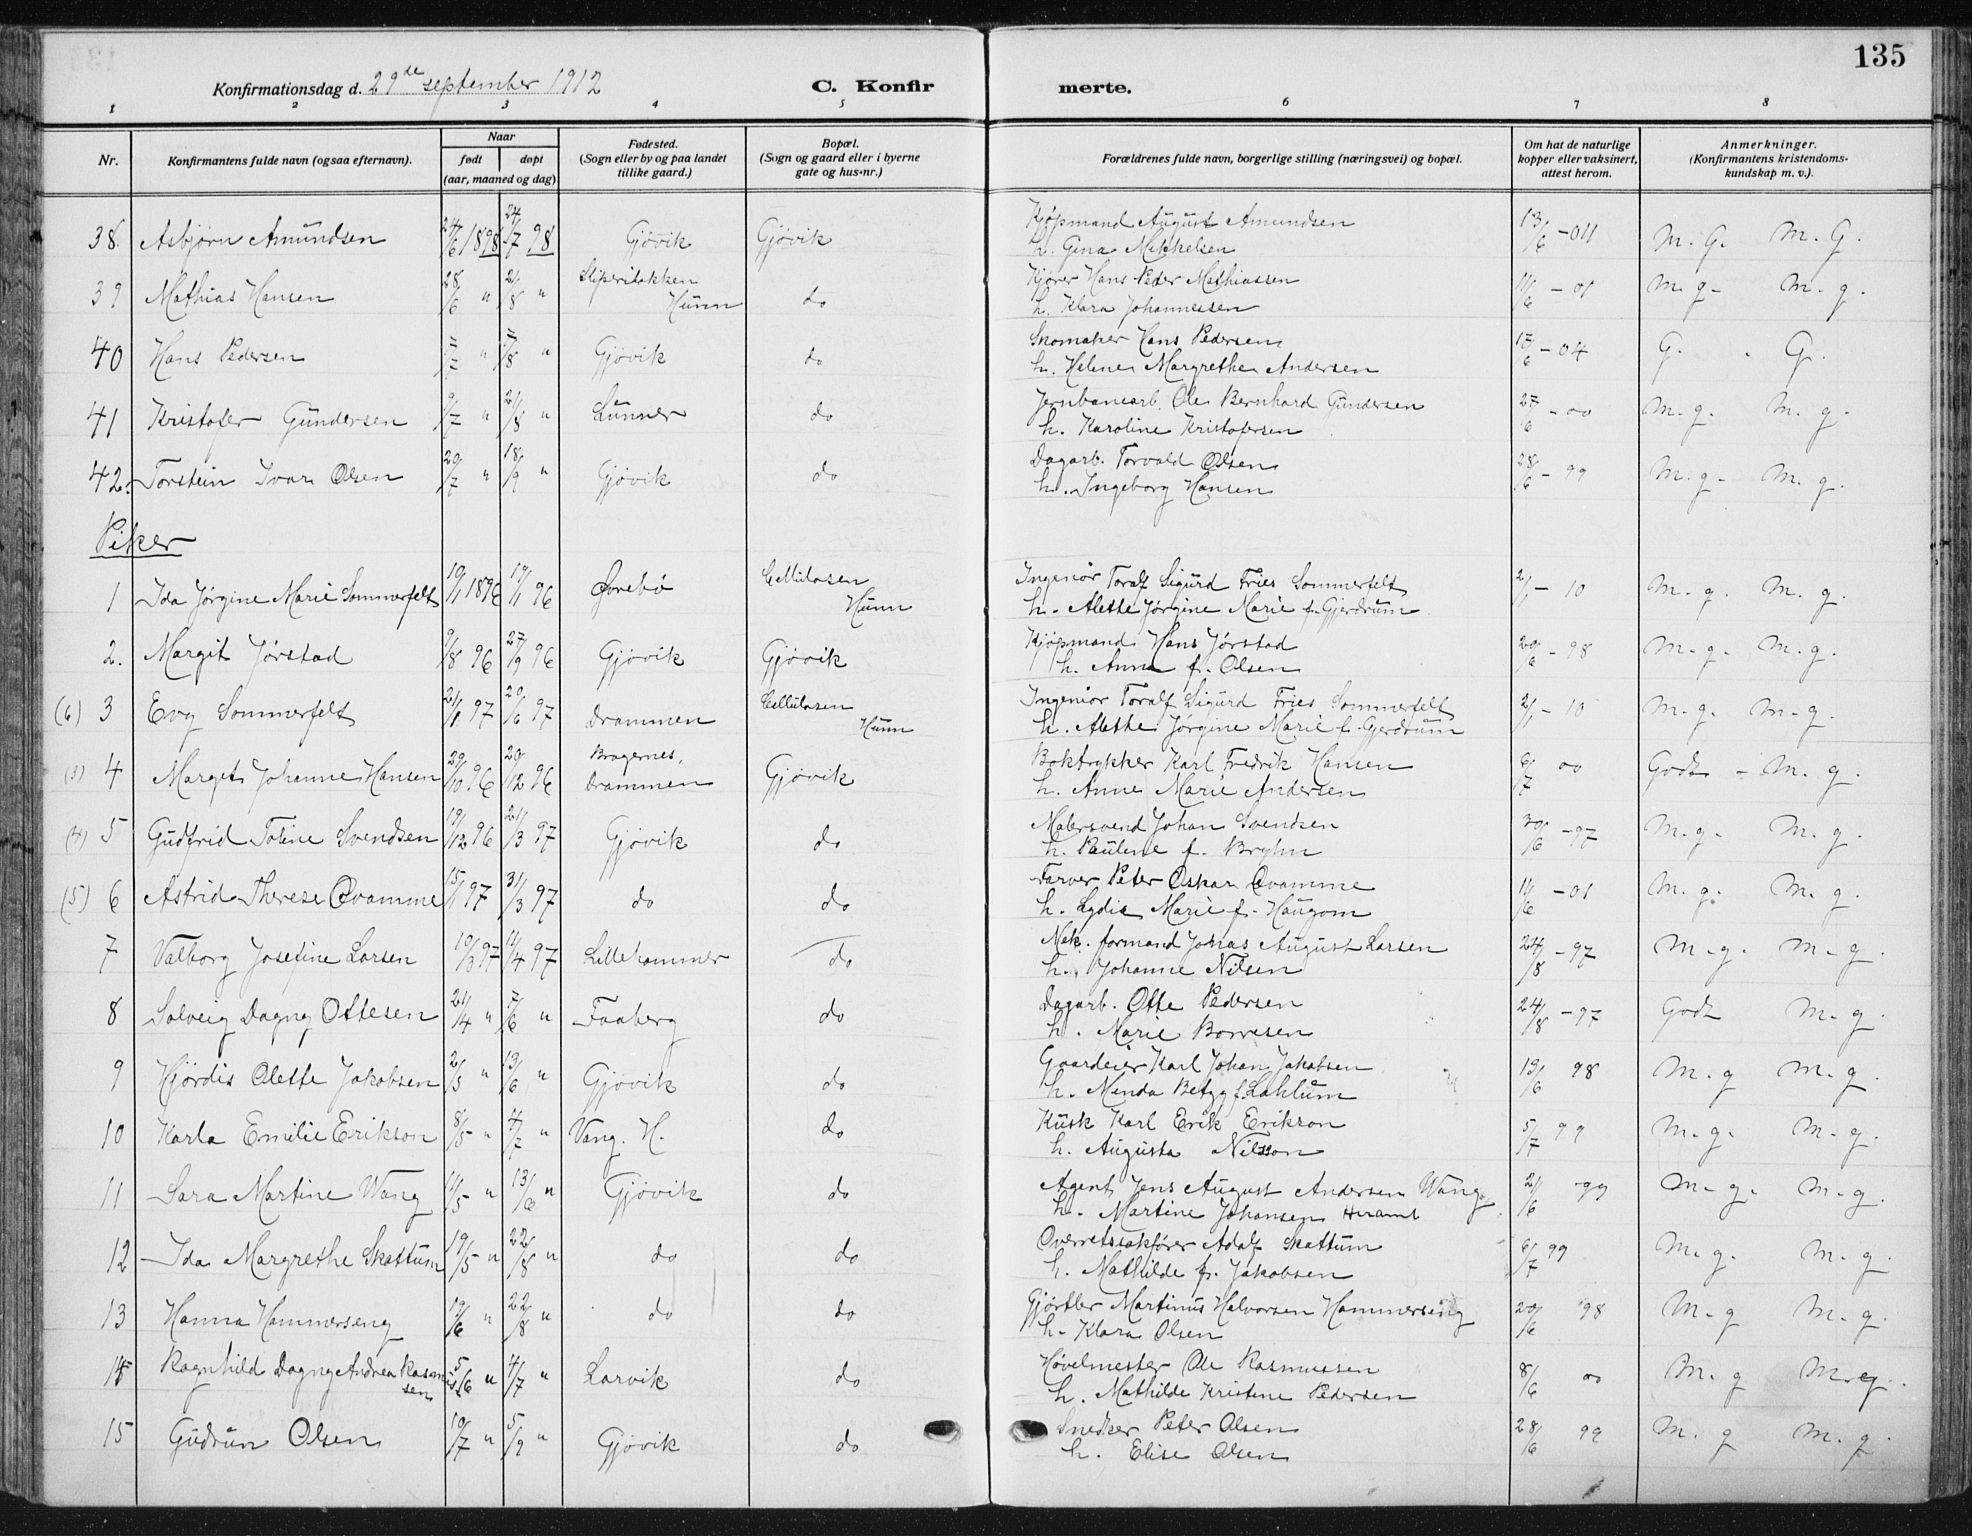 135
Konfirmationsdag d. 29de september 1912
C. Konfirmerte.
1 2 3 4 5 6 7 8
Nr. Konfirmantens fulde navn (ogsaa efternavn). Naar født døpt (aar, maaned og dag) Fødested. (Sogn eller by og paa landet tillike gaard.) Bopæl. (Sogn og gaard eller i byerne gate og hus-nr.) Forældrenes fulde navn, borgerlige stilling (næringsvei) og bopæl. Om hat de naturlige kopper eller vaksinert, attest herom. Anmerkninger. (Konfirmantens kristendomskundskap m. v.).
38. Asbjørn Amundsen 24/6 1898 24/7 98 Gjøvik Gjøvik Kjøpmand August Amundsen 13/6 - 04 M. G. M. G.
h. Gina Mikkelsen
39 Mathias Hansen 28/6 " 21/8 " Sliperiløkken Hunn do Kjører Hans Peder Mathiassen 11/6 - 01 M. g. M. g.
h. Klara Johannessen
40 Hans Pedersen 7/7 " 7/8 " Gjøvik do Skomaker Hans Pedersen 15/6 - 04 G. G.
h. Helene Margrethe Andersen
41 Kristofer Gundersen 9/7 " 21/8 " Lunner do Jernbanearb. Ole Bernhard Gundersen 27/6 - 00 M. g. M. g.
h. Karoline Kristofersen
42. Torstein Ivar Olsen 20/7 " 18/9 " Gjøvik do Dagarb. Torvald Olsen 28/6 - 99 M. g. M. g.
h. Ingeborg Hansen
Piker
1 Ida Jørgine Marie Sommerfelt 19/1 1896 19/1 96 Ørebö Cellulosen Hunn Ingeniør Toralf Sigurd Fries Sommerfelt 2/1 - 10 M. g. M. g.
h. Alette Jørgine Marie f. Gjerdrum
2. Margit Jørstad 9/8 96 27/9 96 Gjøvik Gjøvik Kjøpmand Hans Jørstad 29/6 - 98 M. g. M. g.
h. Anna f. Olsen
(6) 3 Evy Sommerfelt 21/1 97 20/6 97 Drammen Cellulosen Hunn Ingeniør Toralf Sigurd Fries Sommerfelt 2/1 - 10 M. g. M. g.
h. Alette Jørgine Marie f. Gjerdrum
(3) 4 Margit Johanne Hansen 29/10 96 20/12 96 Bragernes, Drammen Gjøvik Boktrykker Karl Fredrik Hansen 6/7 00 Godt - M. g.
h. Anne Marie Andersen
(4) 5 Gudfrid Toline Svendsen 19/12 96 21/3 97 Gjøvik do Malersvend Johan Svendsen 30/6 - 97 M. g. M. g.
h. Pauline f. Bryhn
(5) 6 Astrid Therese Qvamme 15/1 97 31/3 97 do do Farver Peter Oskar Qvamme 11/6 - 01 M. g. M. g.
h. Lydia Marie f. Haugom
7 Valborg Josefine Larsen 10/3 97 11/4 97 Lillehammer do Mek. formand Johas August Larsen 24/8 - 97 M. g. M. g.
h. Johanne Nilsen
8 Solveig Dagny Ottesen 21/4 " 7/6 " Faaberg do Dagarb. Otte Pedersen 24/8 - 97 Godt M. g.
h. Marie Borresen
9 Hjördis Alette Jakobsen 2/5 " 13/6 " Gjøvik do Gaardeier Karl Johan Jakobsen 13/6 98 M. g M. g.
h. Minda Betzy f. Lahlum
10 Karla Emilie Erikson 8/5 " 4/7 " Vang. H. do Kusk Karl Erik Erikson 5/7 99 M. g. M. g.
h. Augusta Nilsson
11 Sara Martine Wang 11/5 " 13/6 " Gjøvik do Agent Jens August Andersen Wang 21/6 99 M. g. M. g.
h. Martine Johansen
12 Ida Margrethe Skattum 19/5 " 22/8 " do do Overretssakfører Adolf Skattum 6/7 99 M. g. M. g.
h. Mathilde f. Jakobsen
13 Hanna Hammerseng 19/6 " 22/8 " do do Gjørtler Martinus Halvorsen Hammerseng 20/6 98 M. g M. g.
h. Klara Olsen
14 Ragnhild Dagny Andrea Rasmussen 5/6 " 4/7 " Larvik do Høvelmester Ole Rasmussen 8/6 00 M. g M. g.
h. Mathilde Kristine Pedersen
15 Gudrun Olsen 19/7 " 5/9 " Gjøvik do Snedker Peter Olsen 28/6 99 M. g M. g.
h. Elise Olsen